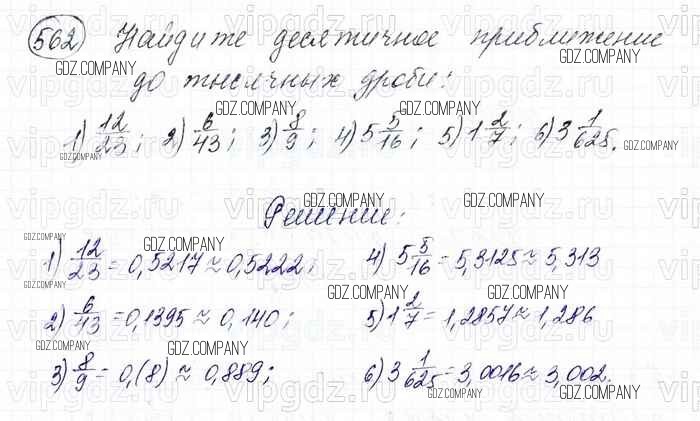 562 Найдите десятичное приближение
до тысячных дроби:
1) 12/23; 2) 6/43; 3) 8/9; 4) 5 5/16; 5) 1 2/7; 6) 3 1/625.
Решение:
1) 12/23 = 0,5217 ≈ 0,5222;
2) 6/43 = 0,1395 ≈ 0,140;
3) 8/9 = 0,(8) ≈ 0,889;
4) 5 5/16 = 5,3125 ≈ 5,313
5) 1 2/7 = 1,2857 ≈ 1,286
6) 3 1/625 = 3,0016 ≈ 3,002.
GDZ.COMPANY
vipgdz.ru